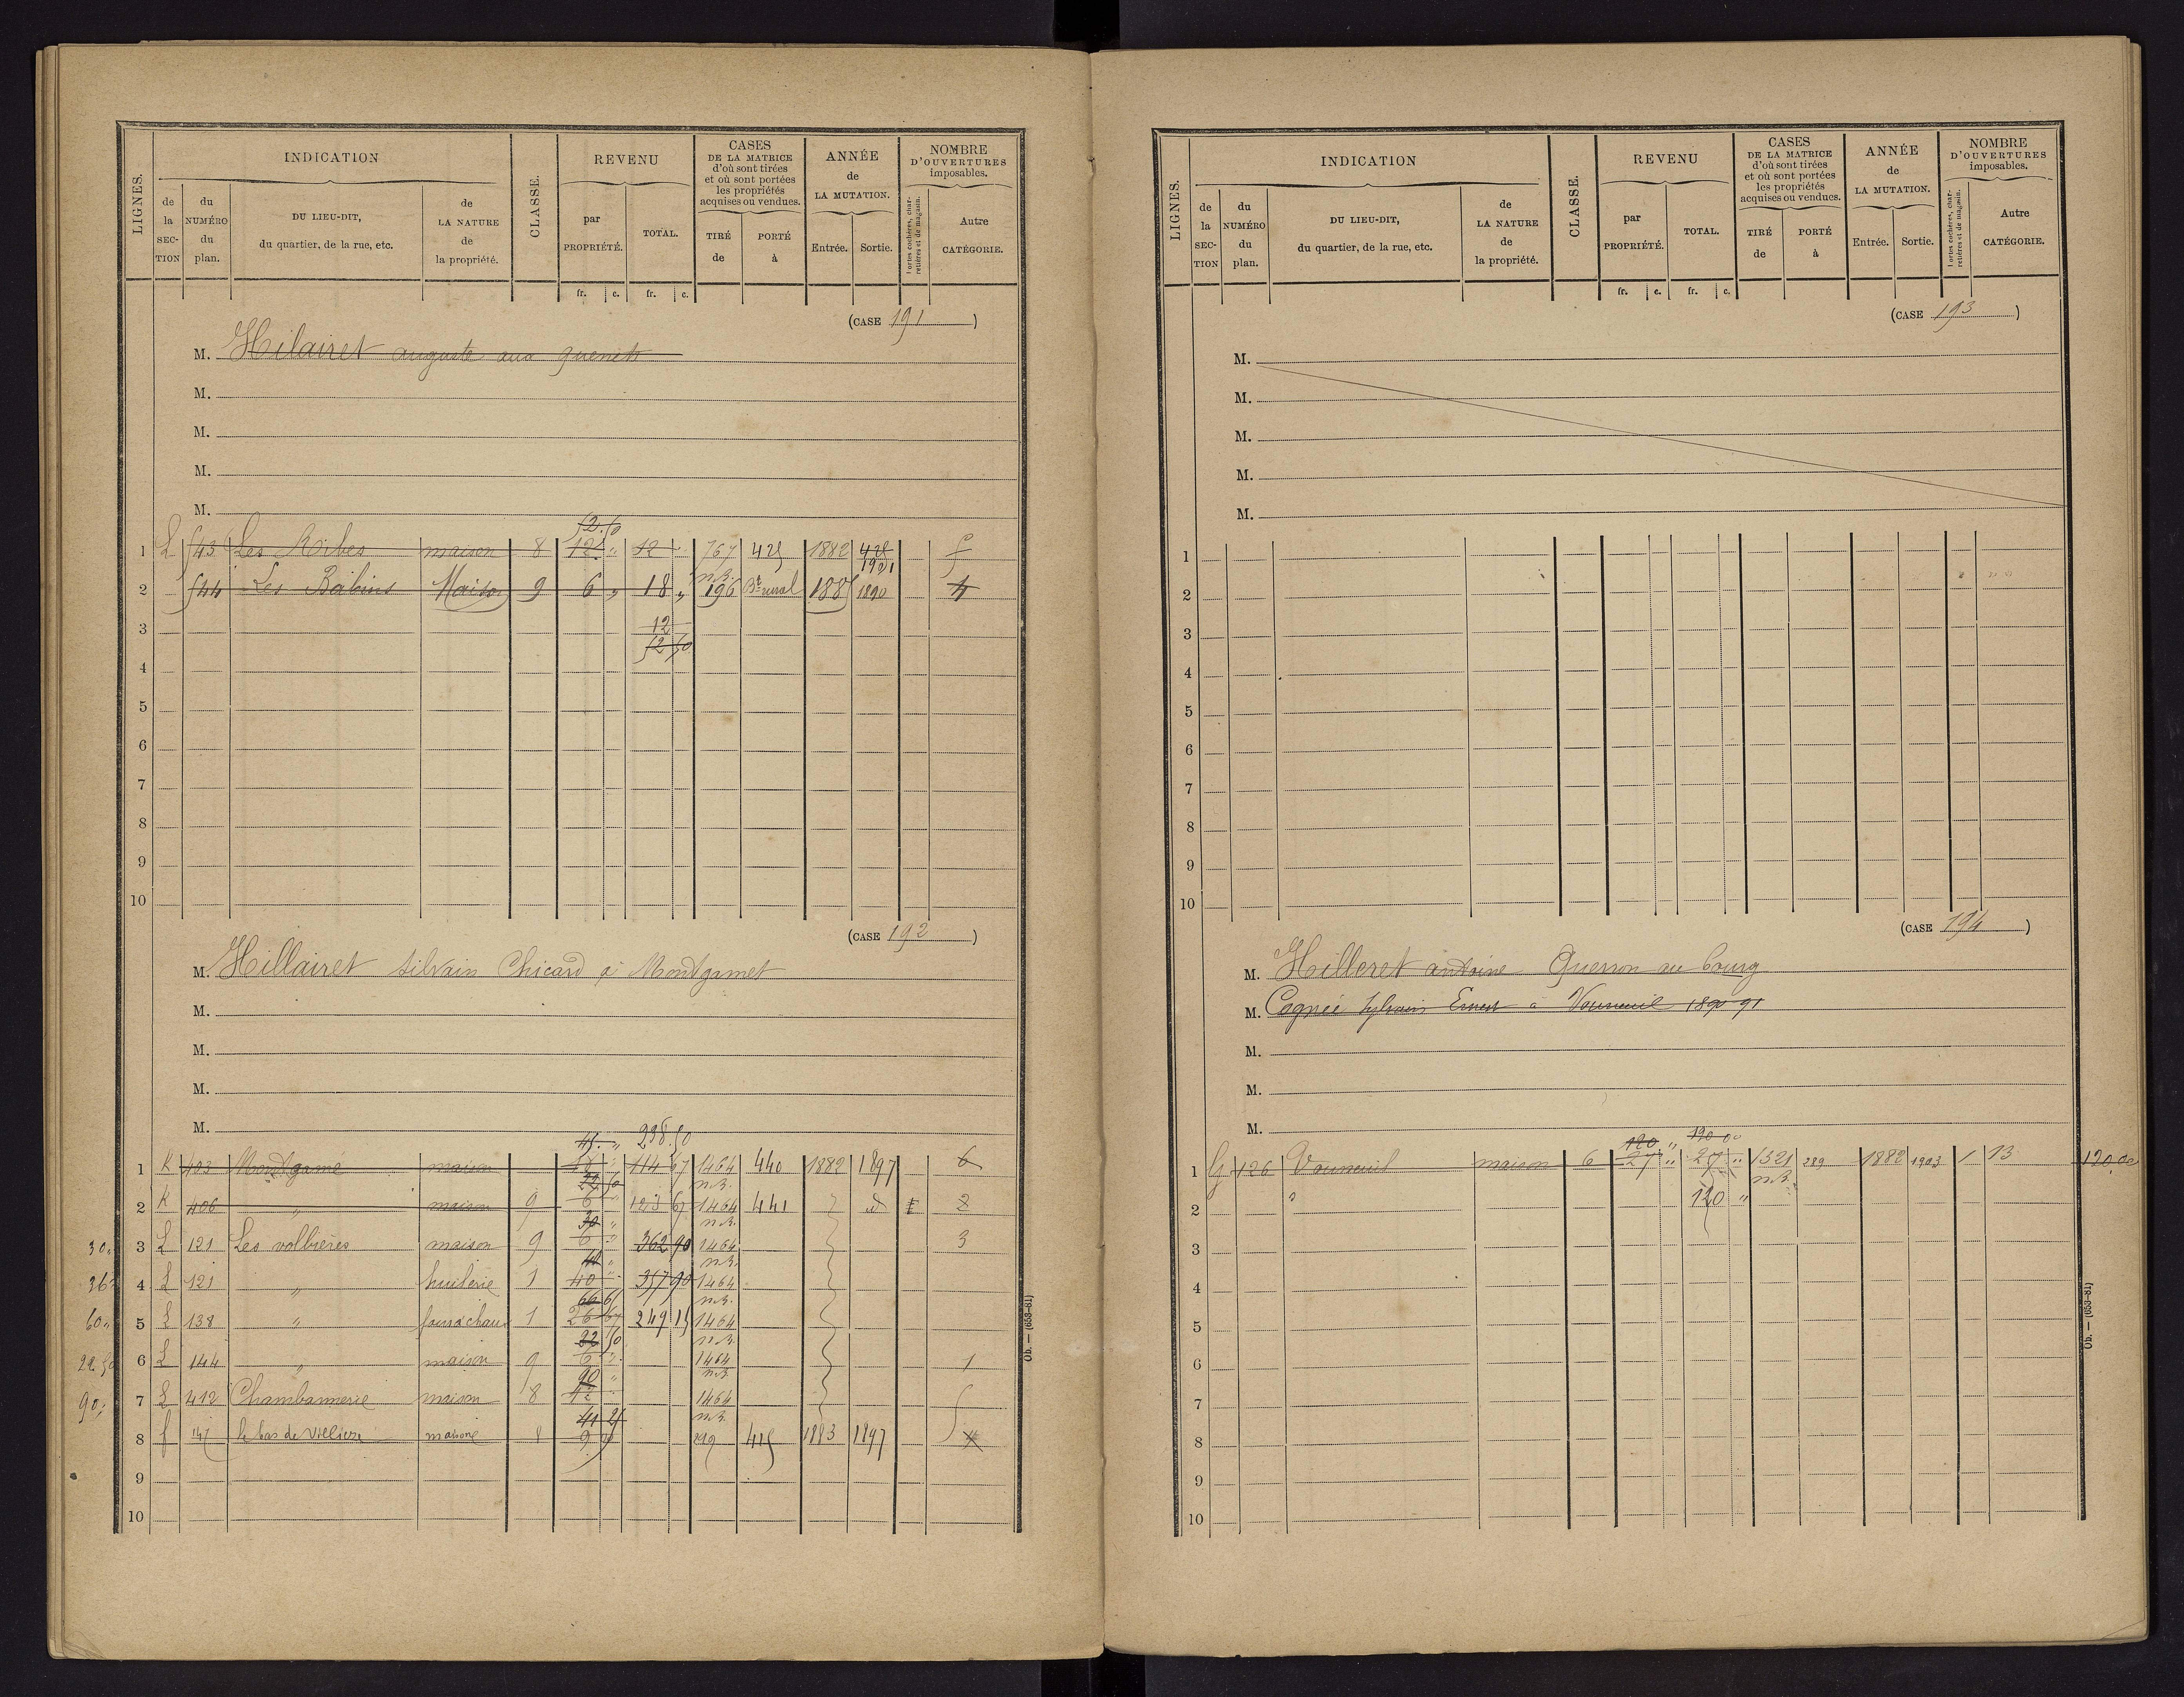 LIGNES. INDICATION CLASSE. REVENU CASES DE LA MATRICE d'où sont tirées et où sont portées les propriétés acquises ou vendues. ANNÉE de LA MUTATION. NOMBRE D'OUVERTURES imposables.
de la SECTION du NUMÉRO du plan. DU LIEU-DIT, du quartier, de la rue, etc. de LA NATURE de la propriété. par PROPRIÉTÉ. TOTAL. TIRÉ de PORTÉ à Entrée. Sortie. Portes cochères, charretières et de magasin. Autre CATÉGORIE.
fr. c. fr. c.
(CASE 191)
M. Hilairet auguste aux quenets
M.
M.
M.
M.
1 L Les maison 8 12 " 12 " 767 1882 1901
n.B.
2 544 Les Babins Maison 9 6 " 18 " 196 Bt rural 1885 1890 4
3 12
4
5
6
7
8
9
10
(CASE 192)
M. Hillairet silvain Chicard à Montgamet
M.
M.
M.
M.
45. " 238.50
1 K 403 Montgamé maison 114 67 1464 440 1882 1897 6
22 50 n.B.
2 K 406 " maison 9 6 " 123 67 1464 441 d 2
30 " n.B.
30 " 3 L 121 Les volbières maison 9 6 " 362 90 1464 3
n.B.
36 " 4 L 121 " huilerie 1 40 " 357 90 1464
66 67 n.B.
60 " 5 L 138 " four à chaux 1 26 67 249 15 1464
22 50 n.B.
22.50 6 L 144 " maison 9 6 " 1464 1
90 " n.B.
90 " 7 L 412 Chambannerie maison 8 12 " 1464 5
41 25 n.B.
8 le bas de Villiers maison 8 9 299 415 1883 1897
9
10
LIGNES. INDICATION CLASSE. REVENU CASES DE LA MATRICE d'où sont tirées et où sont portées les propriétés acquises ou vendues. ANNÉE de LA MUTATION. NOMBRE D'OUVERTURES imposables.
de la SECTION du NUMÉRO du plan. DU LIEU-DIT, du quartier, de la rue, etc. de LA NATURE de la propriété. par PROPRIÉTÉ. TOTAL. TIRÉ de PORTÉ à Entrée. Sortie. Portes cochères, charretières et de magasin. Autre CATÉGORIE.
fr. c. fr. c.
(CASE 193)
M.
M.
M.
M.
M.
1
2
3
4
5
6
7
8
9
10
(CASE 194)
M. Hilleret antoine Querron au bourg
M. Cognée Sylvain Ernest à Vouneuil 1890 91
M.
M.
M.
120 " 120 00
1 G 126 Vouneuil maison 6 27 " 27 " 1321 289 1882 1903 1 13 120.00
n.B.
2 " 120 "
3
4
5
6
7
8
9
10
Ob. — (653-81)
Ob. — (653-81)